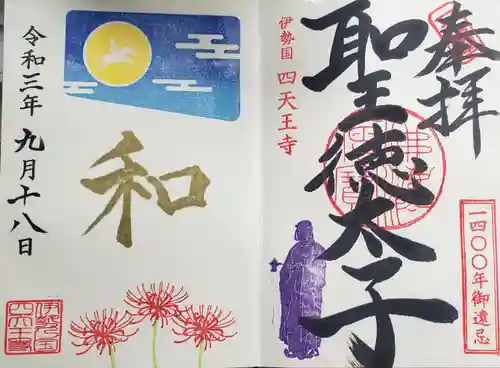 奉拝
聖徳太子
伊勢国 四天王寺
一四〇〇年御遠忌
和
令和三年九月十八日
伊勢国
四天王寺